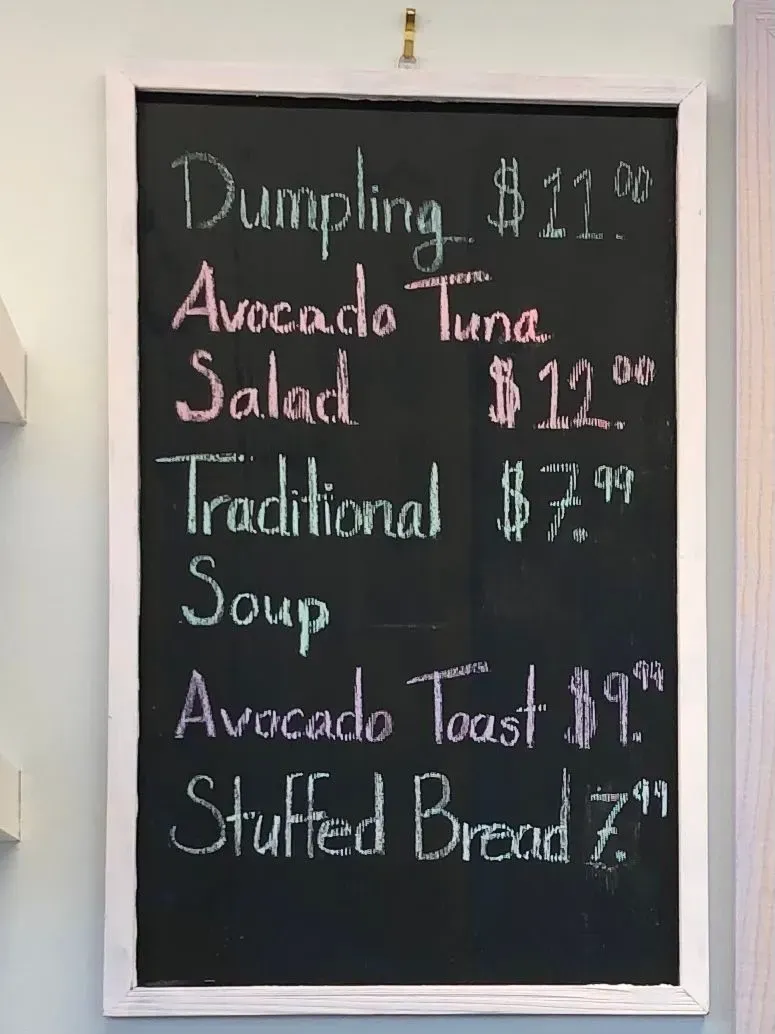 Dumpling $11.00
Avocado Tuna
Salad $12.00
Traditional $7.99
Soup
Avocado Toast $9.99
Stuffed Bread 7.99